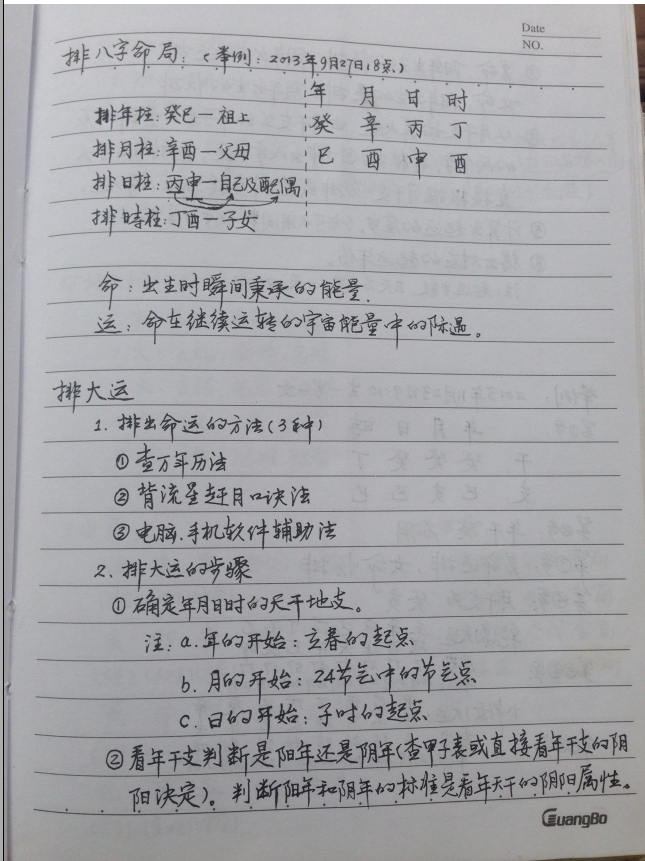 Date
NO.
排八字命局:(举例:2013年9月27日18点)
年 月 日 时
排年柱:癸巳—祖上 癸 辛 丙 丁
排月柱:辛酉—父母 巳 酉 申 酉
排日柱:丙申—自己及配偶
排時柱:丁酉—子女
命:出生时瞬间秉承的能量.
运:命在继续运转的宇宙能量中的际遇。
排大运
1. 排出命运的方法(3种)
①查万年历法
②背流星赶月口诀法
③电脑.手机软件辅助法
2. 排大运的步骤
①确定年月日时的天干地支。
注:a.年的开始:立春的起点
b. 月的开始:24节气中的节气点
c. 日的开始:子时的起点
②看年干支判断是阳年还是阴年(查甲子表或直接看年干支的阴
阳决定)。判断阳年和阴年的标准是看年天干的阴阳属性。
GuangBo